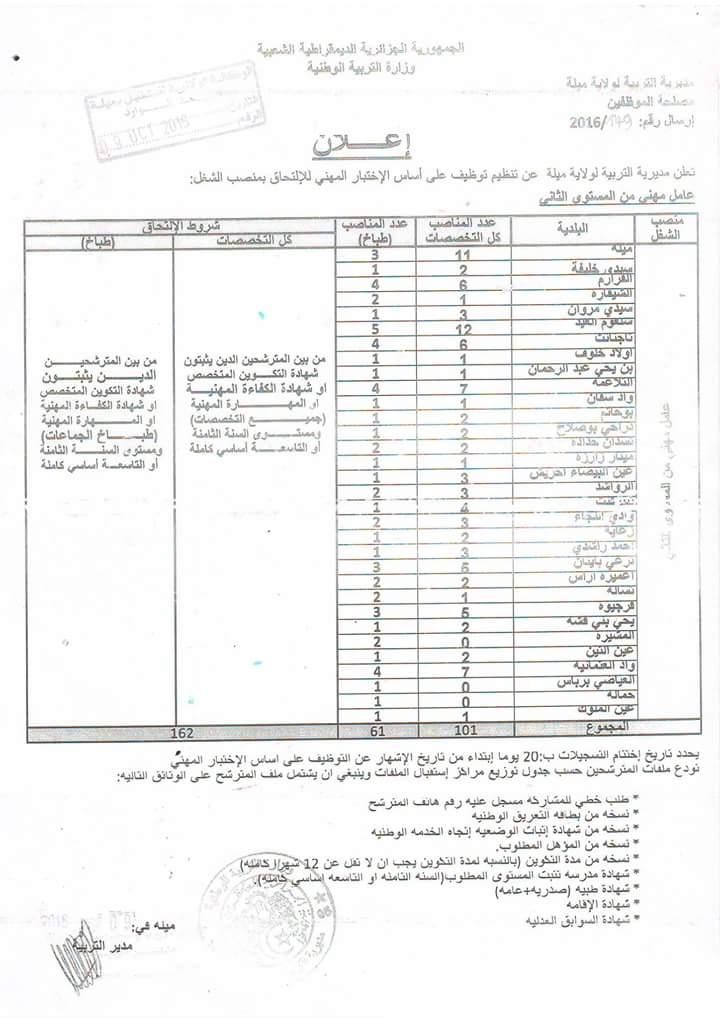 الجمهورية الجزائرية الديمقراطية الشعبية
وزارة التربية الوطنية
مديرية التربية لولاية ميلة
مصلحة الموظفين
إرسال رقم: 149/2016
09 OCT 2016
إعـــلان
تعلن مديرية التربية لولاية ميلة عن تنظيم توظيف على أساس الإختبار المهني للإلتحاق بمنصب الشغل:
عامل مهني من المستوى الثاني
منصب الشغل | البلدية | عدد المناصب كل التخصصات | عدد المناصب (طباخ) | شروط الإلتحاق
كل التخصصات | (طباخ)
عامل مهني من المستوى الثاني
ميلة 11 3
سيدي خليفة 2 1
القرارم 6 4
الشيقارة 1 2
سيدي مروان 3 1
شلغوم العيد 12 5
تاجنانت 6 4
أولاد خلوف 1 1
بن يحي عبد الرحمان 1 1
التلاغمة 7 4
واد سقان 1 1
بوحاتم 2 1
دراحي بوصلاح 2 1
تسدان حدادة 2 2
مينار زارزة 1 1
عين البيضاء احريش 3 1
الرواشد 3 2
4 1
وادي النجاء 3 2
زغاية 2 1
احمد راشدي 3 1
ترعي باينان 5 3
اعميرة اراس 2 2
تسالة 1 2
فرجيوة 5 3
يحي بني قشة 2 1
المشيرة 0 2
عين التين 2 1
واد العثمانية 7 4
العياضي برباس 0 1
حمالة 0 1
عين الملوك 1 1
المجموع 101 61 162
من بين المترشحين الذين يثبتون
شهادة التكوين المتخصص
او شهادة الكفاءة المهنية
او المهـارة المهنية
(جميع التخصصات)
ومستوى السنة الثامنة
أو التاسعة أساسي كاملة
من بين المترشحيـن
الذيـن يثبتـون
شهادة التكوين المتخصص
او شهادة الكفاءة المهنية
او المهـارة المهنية
(طباخ الجماعات)
ومستوى السنة الثامنة
أو التاسعة أساسي كاملة
يحدد تاريخ إختتام التسجيلات ب:20 يوما إبتداء من تاريخ الإشهار عن التوظيف على اساس الإختبار المهني
تودع ملفات المترشحين حسب جدول توزيع مراكز إستقبال الملفات وينبغي ان يشتمل ملف المترشح على الوثائق التالية:
* طلب خطي للمشاركة مسجل عليه رقم هاتف المترشح
* نسخة من بطاقة التعريق الوطنية
* نسخة من شهادة إثبات الوضعية إتجاه الخدمة الوطنية
* نسخة من المؤهل المطلوب.
* نسخة من مدة التكوين (بالنسبة لمدة التكوين يجب ان لا تقل عن 12 شهرا كاملة)
* شهادة مدرسة تثبت المستوى المطلوب(السنة الثامنة او التاسعة اساسي كاملة).
* شهادة طبية (صدرية+عامة)
* شهادة الإقامة
* شهادة السوابق العدلية
ميلة في:
مدير التربية